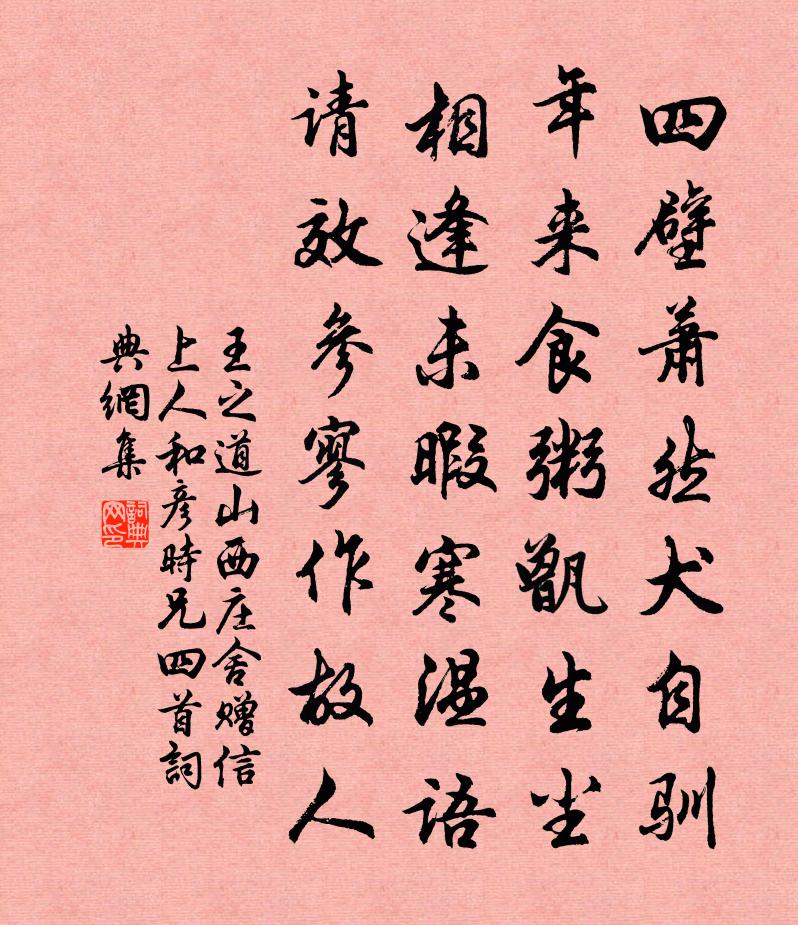 四壁萧然犬自驯
年来食粥甑生尘
相逢未暇寒温语
请效参寥作故人
王之道山西庄舍赠信
上人和彦時兄四首詞
典網集
詞典
网印